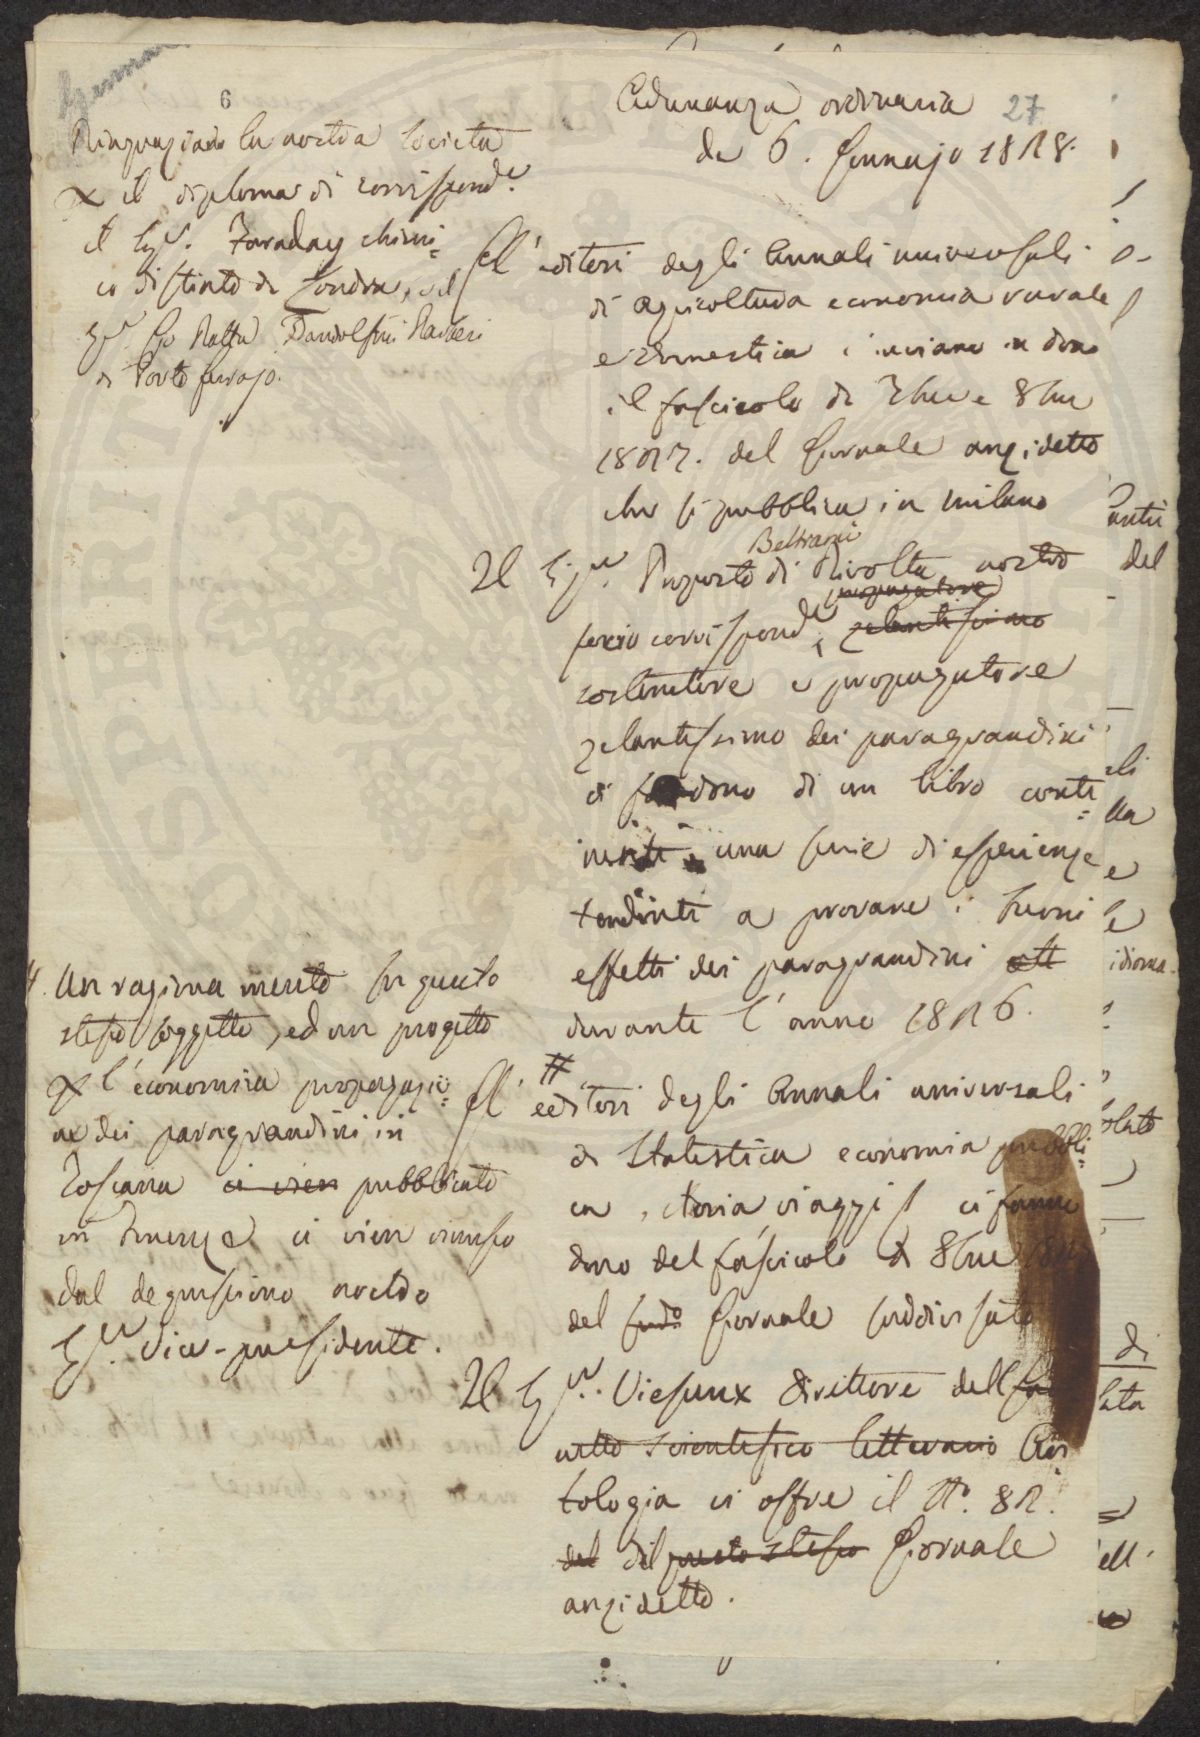 6
27
Adunanza ordinaria
de 6. Gennajo 1828.
Ringraziano la nostra Società
il diploma di corrispond.e
il Sig.r Faraday chimi=
co distinto di Londra, ed il
Sig.r Pandolfini Barberi
di Porto ferrajo.
Gl' editori degli Annali universali
di agricoltura economia rurale
e domestica c' inviano in dono
il fascicolo di 7bre e 8bre
1827. del Giornale anzidetto
che si pubblica in Milano
Il Sig.r Proposto Beltrami di Rivolta nostro
socio corrispond.e, propagatore zelantissimo
sostenitore e propagatore
zelantissimo dei paragrandini
ci fa dono di un libro conte
=nente una serie di esperienze
tendenti a provare i buoni
effetti dei paragrandini
durante l' anno 1826.
#
Gl' editori degli Annali universali
di Statistica economia pubbli=
ca, storia viaggi ci fanno
dono del fascicolo di 8bre
del sud.o Giornale
Il Sig.r Vieusseux direttore dell
scientifico letterario An
tologia ci offre il N.o 82.
del del questo stesso Giornale
anzidetto.
# Un ragionamento su questo
stesso soggetto, ed un progetto
l' economia propagazio=
ne dei paragrandini in
Toscana ci vien pubblicato
in Firenze ci vien
dal degnissimo nostro
Sig.r Vice-presidente.
del
idioma
di
ell'